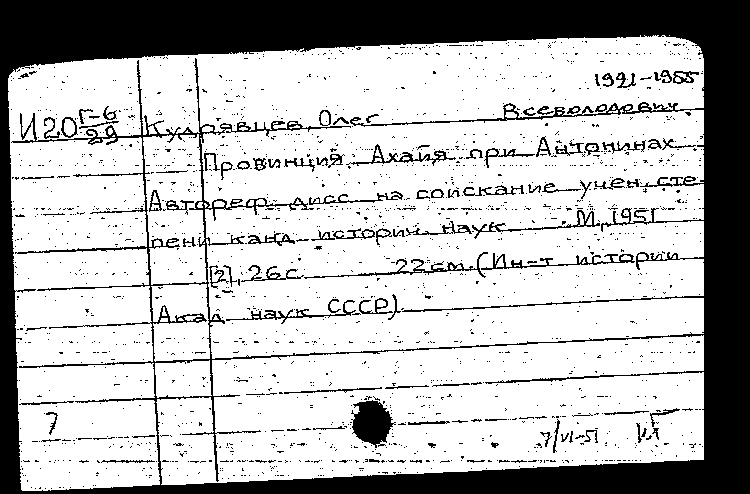 1921-1955
И20 Г-6/29 Кудрявцев, Олег Всеволодович.
Провинция Ахайя при Антонинах.
Автореф. дисс. на соискание учен. сте-
пени канд. историч. наук. М., 1951
[2], 26 с. 22 см. (Ин-т истории
Акад. наук СССР)
7 7/VI-51